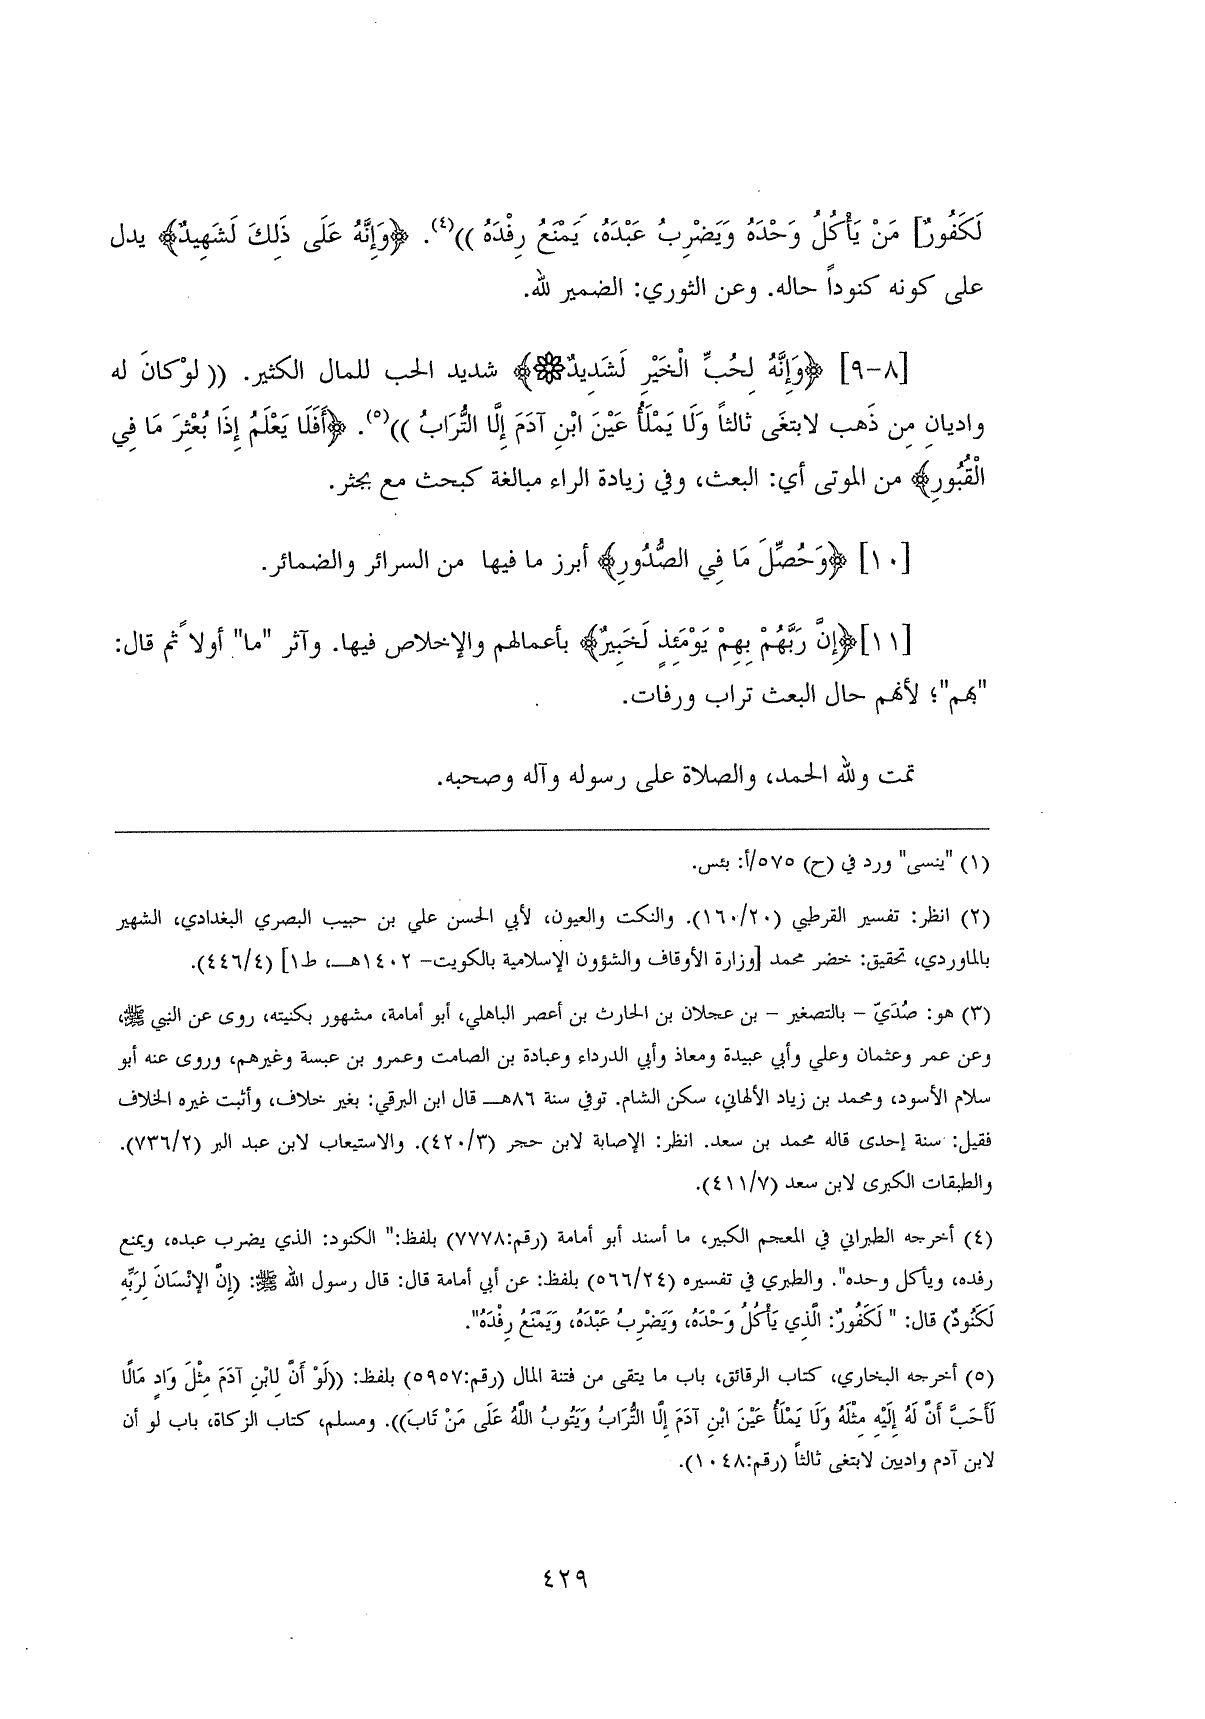 لَكَفُورٌ] مَنْ يَأْكُلُ وَحْدَهُ وَيَضْرِبُ عَبْدَهُ، يَمْنَعُ رِفْدَهُ ))(٤). ﴿وَإِنَّهُ عَلَى ذَلِكَ لَشَهِيدٌ﴾ يدل
على كونه كنوداً حاله. وعن الثوري: الضمير لله.
[٨-٩] ﴿وَإِنَّهُ لِحُبِّ الْخَيْرِ لَشَدِيدٌ۞﴾ شديد الحب للمال الكثير. (( لوْ كانَ له
واديانِ مِن ذَهب لابتغَى ثالثاً وَلَا يَمْلَأُ عَيْنَ ابْنِ آدَمَ إِلَّا التُّرَابُ ))(٥). ﴿أَفَلَا يَعْلَمُ إِذَا بُعْثِرَ مَا فِي
الْقُبُورِ﴾ من الموتى أي: البعث، وفي زيادة الراء مبالغة كبحث مع بحثر.
[١٠] ﴿وَحُصِّلَ مَا فِي الصُّدُورِ﴾ أبرز ما فيها من السرائر والضمائر.
[١١]﴿إِنَّ رَبَّهُمْ بِهِمْ يَوْمَئِذٍ لَخَبِيرٌ﴾ بأعمالهم والإخلاص فيها. وآثر "ما" أولاً ثم قال:
"بهم"؛ لأنهم حال البعث تراب ورفات.
تمت ولله الحمد، والصلاة على رسوله وآله وصحبه.
(١) "ينسى" ورد في (ح) ٥٧٥/أ: بئس.
(٢) انظر: تفسير القرطبي (١٦٠/٢٠). والنكت والعيون، لأبي الحسن علي بن حبيب البصري البغدادي، الشهير
بالماوردي، تحقيق: خضر محمد [وزارة الأوقاف والشؤون الإسلامية بالكويت- ١٤٠٢هـ، ط١] (٤٤٦/٤).
(٣) هو: صُدَيّ - بالتصغير - بن عجلان بن الحارث بن أعصر الباهلي، أبو أمامة، مشهور بكنيته، روى عن النبي ﷺ،
وعن عمر وعثمان وعلي وأبي عبيدة ومعاذ وأبي الدرداء وعبادة بن الصامت وعمرو بن عبسة وغيرهم، وروى عنه أبو
سلام الأسود، ومحمد بن زياد الألهاني، سكن الشام. توفي سنة ٨٦هـ قال ابن البرقي: بغير خلاف، وأثبت غيره الخلاف
فقيل: سنة إحدى قاله محمد بن سعد. انظر: الإصابة لابن حجر (٤٢٠/٣). والاستيعاب لابن عبد البر (٧٣٦/٢).
والطبقات الكبرى لابن سعد (٤١١/٧).
(٤) أخرجه الطبراني في المعجم الكبير، ما أسند أبو أمامة (رقم:٧٧٧٨) بلفظ:" الكنود: الذي يضرب عبده، ويمنع
رفده، ويأكل وحده". والطبري في تفسيره (٥٦٦/٢٤) بلفظ: عن أبي أمامة قال: قال رسول الله ﷺ: (إِنَّ الإِنْسَانَ لِرَبِّهِ
لَكَنُودٌ) قال: " لَكَفُورٌ: الَّذِي يَأْكُلُ وَحْدَهُ، وَيَضْرِبُ عَبْدَهُ، وَيَمْنَعُ رِفْدَهُ".
(٥) أخرجه البخاري، كتاب الرقائق، باب ما يتقى من فتنة المال (رقم:٥٩٥٧) بلفظ: ((لَوْ أَنَّ لِابْنِ آدَمَ مِثْلَ وَادٍ مَالًا
لَأَحَبَّ أَنَّ لَهُ إِلَيْهِ مِثْلَهُ وَلَا يَمْلَأُ عَيْنَ ابْنِ آدَمَ إِلَّا التُّرَابُ وَيَتُوبُ اللَّهُ عَلَى مَنْ تَابَ)). ومسلم، كتاب الزكاة، باب لو أن
لابن آدم واديين لابتغى ثالثاً (رقم:١٠٤٨).
٤٢٩